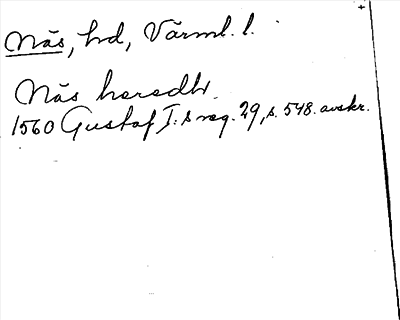 Näs, hd, Värml. l.
Näs haredh.
1560 Gustaf I:s reg. 29, s. 548. avskr.